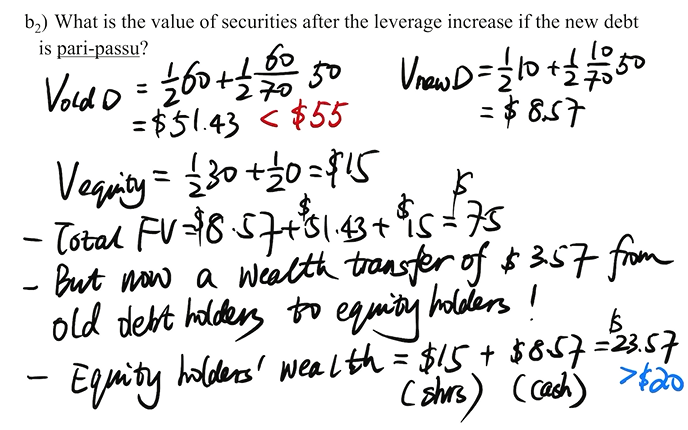 b₂) What is the value of securities after the leverage increase if the new debt
is pari-passu?
V old D = 1/2 60 + 1/2 60/70 50
= $51.43 < $55
V new D = 1/2 10 + 1/2 10/70 50
= $8.57
V equity = 1/2 30 + 1/2 0 = $15
- Total FV = $8.57 + $51.43 + $15 = $75
- But now a wealth transfer of $3.57 from
old debt holders to equity holders!
- Equity holders' wealth = $15 + $8.57 = $23.57
(shrs) (cash) > $20